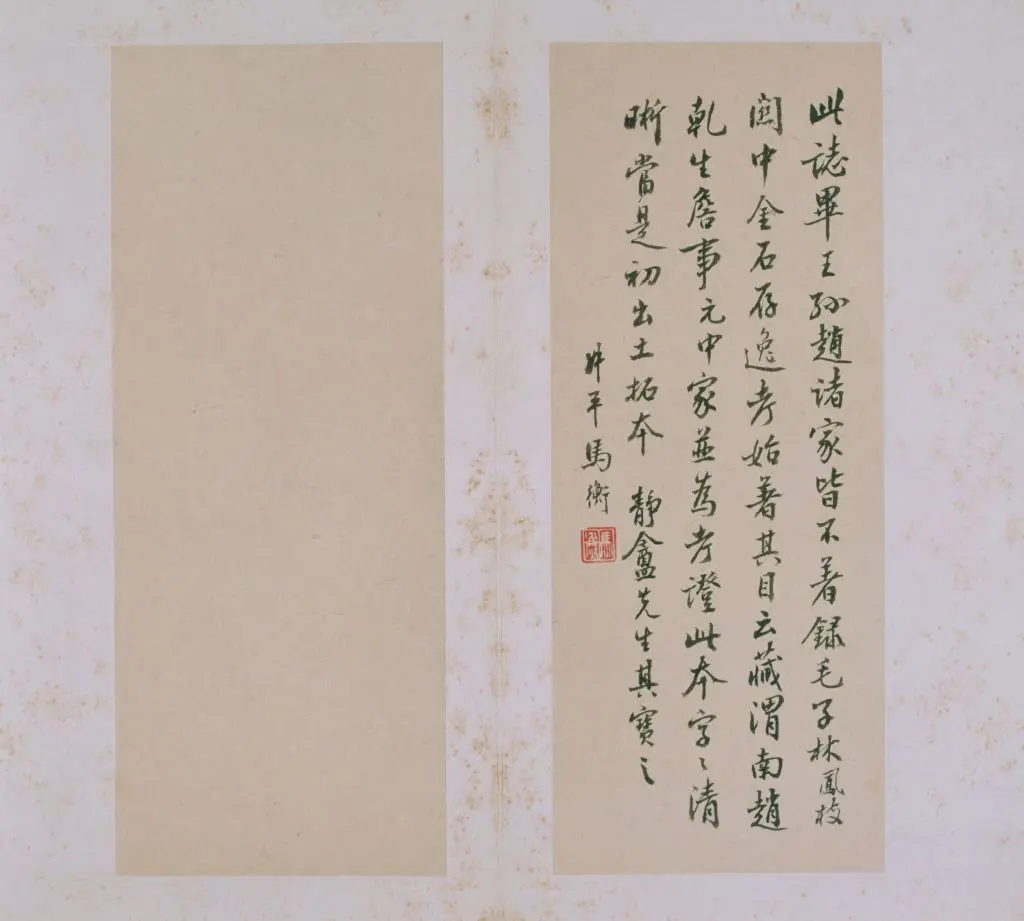 此誌畢王孫趙諸家皆不著録毛子林鳳枝
関中金石存逸考始著其目云藏渭南趙
乹生詹事元中家並為考證此本字〻清
晰當是初出土拓本 靜盦先生其寶之
馬衡